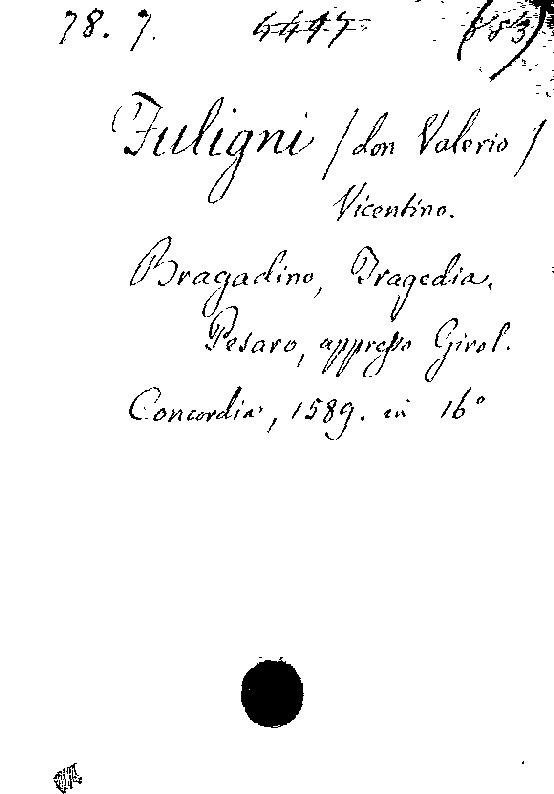 78. 7. 4497
Fuligni / don Valerio /
Vicentino.
Bragadino, Tragedia.
Pesaro, appresso Girol.
Concordia, 1589. in 16°